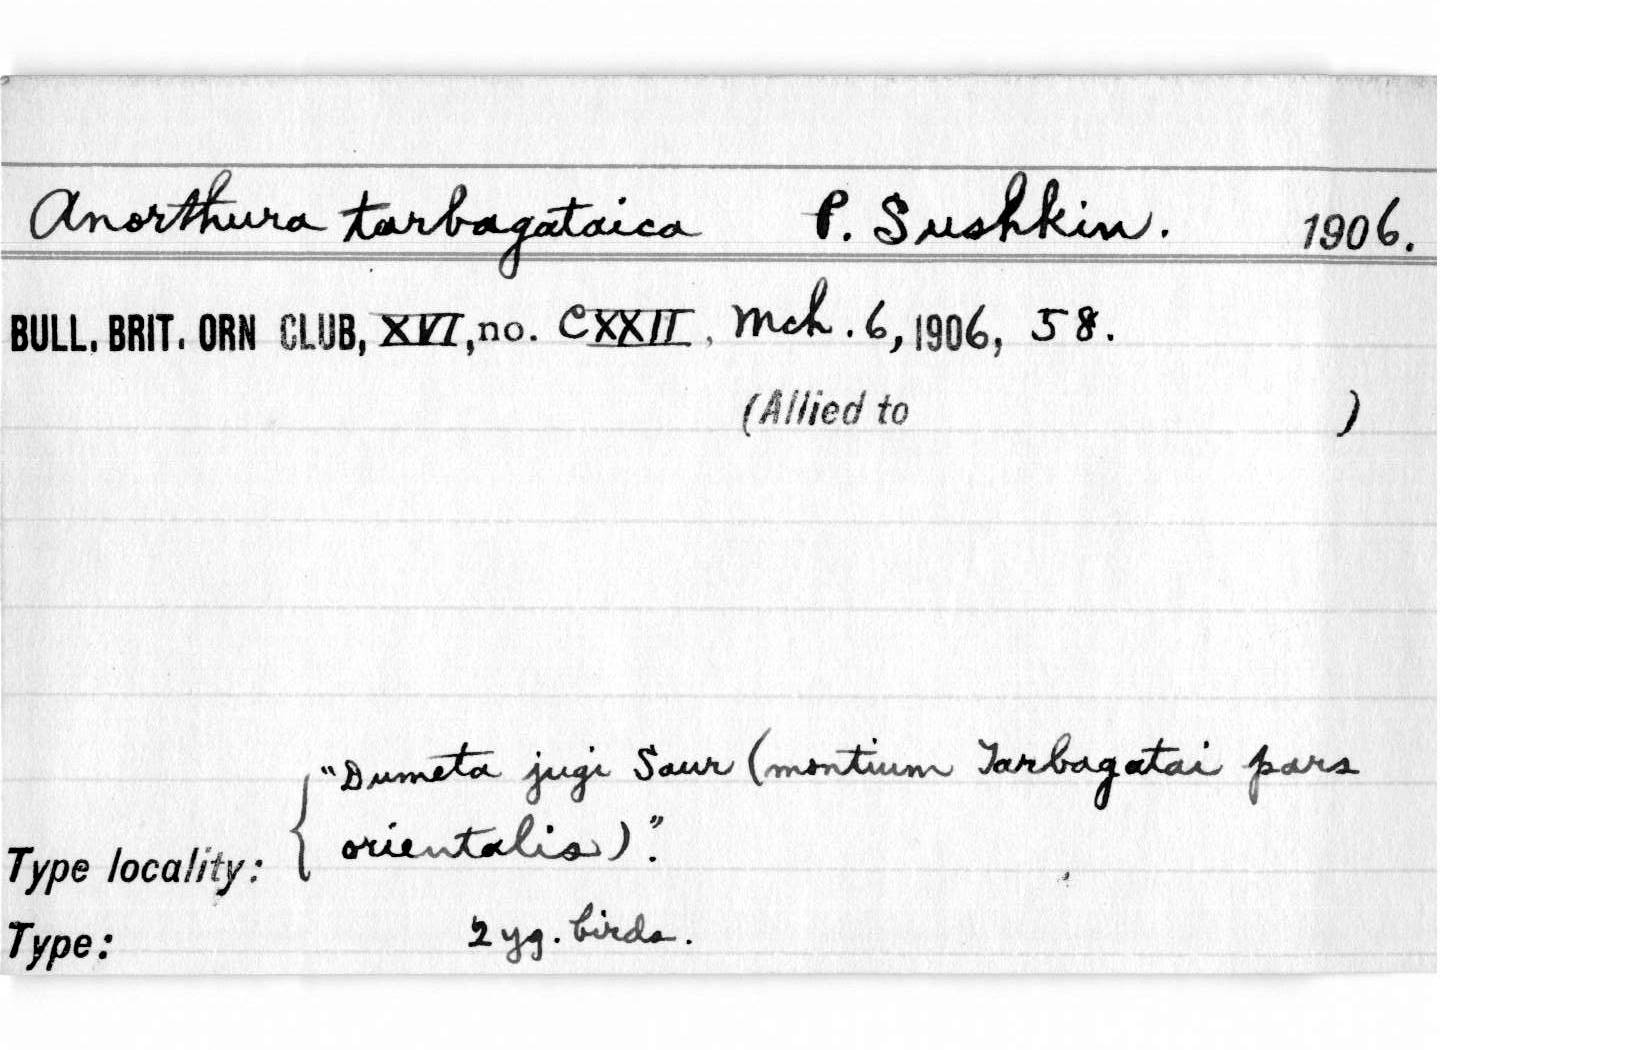 Anorthura tarbagataica P. Sushkin. 1906.
BULL. BRIT. ORN CLUB, XVI, no. CXXII, Mch. 6, 1906, 58.
(Allied to )
"Dumeta jugi Saur (montium Tarbagatai pars
orientalis)."
Type locality:
Type: 2 yg. birds.